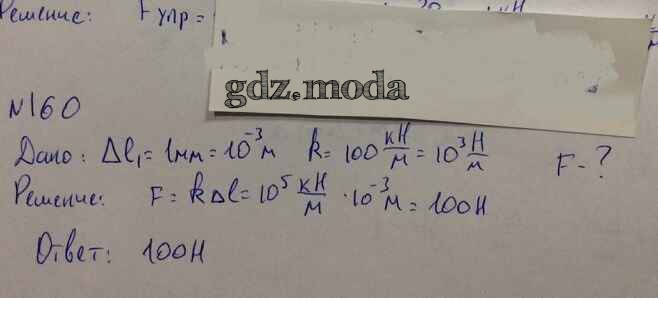 Решение: Fупр =
gdz.moda
N160
Дано: Δl₁ = 1мм = 10⁻³м k = 100 кН/м = 10³ Н/м F - ?
Решение: F = kΔl = 10⁵ кН/м · 10⁻³м = 100Н
Ответ: 100Н